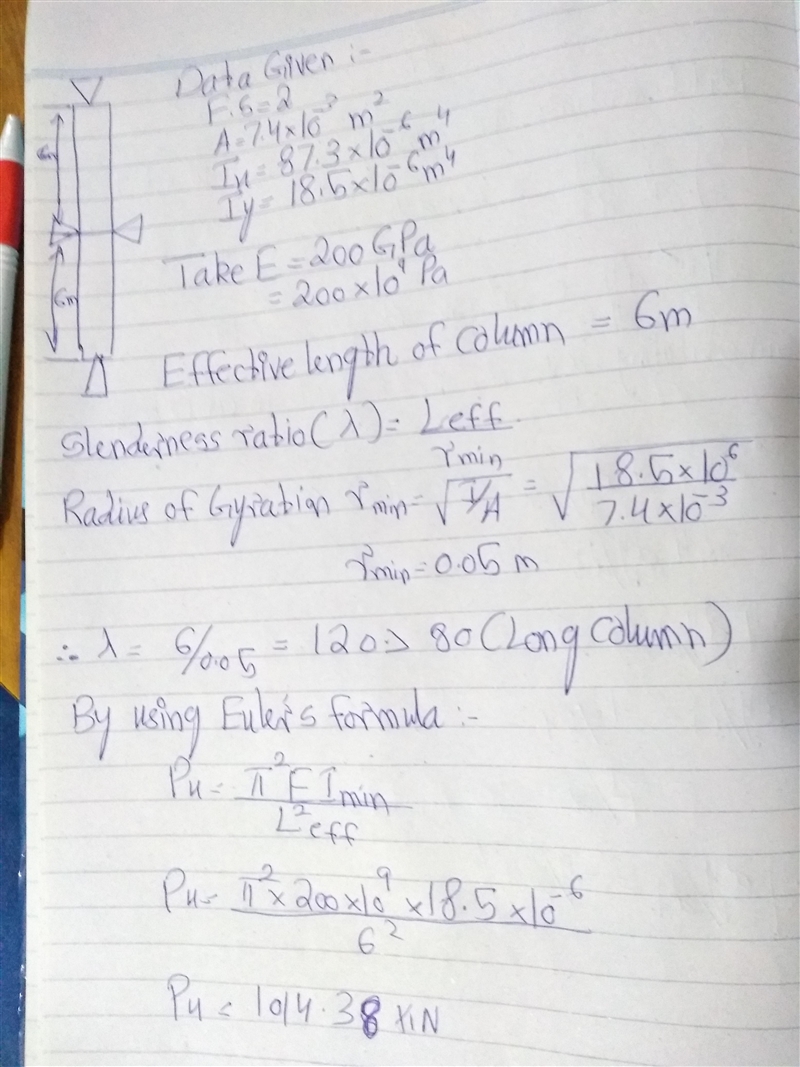 Data Given :-
F.S = 2
A = 7.4×10⁻³ m²
Ix = 87.3×10⁻⁶ m⁴
Iy = 18.5×10⁻⁶ m⁴
6m
6m
Take E = 200 GPa
= 200×10⁹ Pa
Effective length of column = 6m
Slenderness ratio (λ) = Leff / rmin
Radius of Gyration rmin = √(I/A) = √(18.5×10⁻⁶ / 7.4×10⁻³)
rmin = 0.05 m
∴ λ = 6/0.05 = 120 > 80 (Long Column)
By using Euler's formula :-
Pu = π² E Imin / L²eff
Pu = π² × 200×10⁹ × 18.5×10⁻⁶ / 6²
Pu = 1014.38 KN